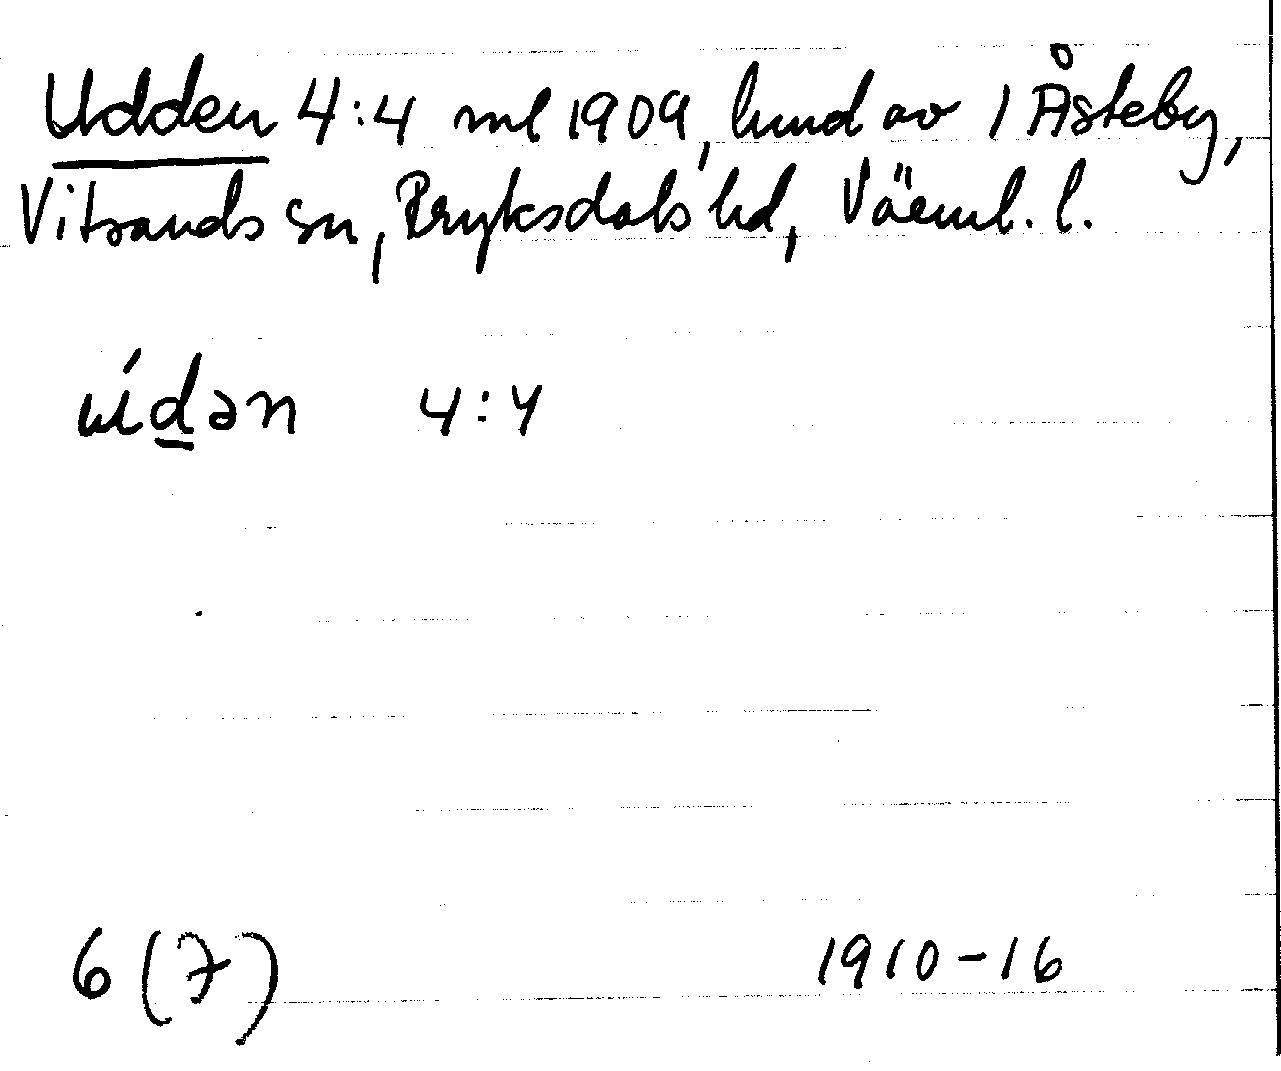 Udden 4:4 ml 1909, hmd av 1 Åsteby,
Vitsands sn, Fryksdals hd, Värml. l.
údən 4:4
6 (7) 1910-16